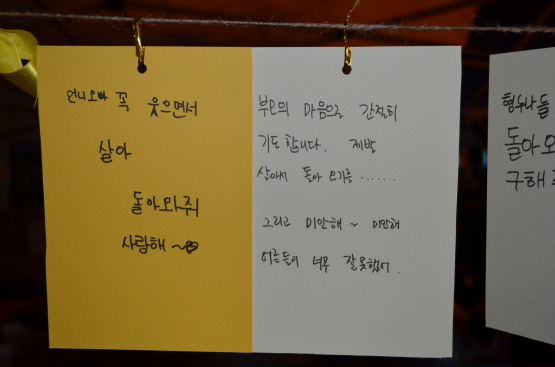 언니오빠 꼭 웃으면서
살아
돌아와줘
사랑해~
부모의 마음으로 간절히
기도합니다. 제발
살아서 돌아오기를 ......
그리고 미안해 ~ 미안해
어른들이 너무 잘못했어.
형누나들
돌아오
구해